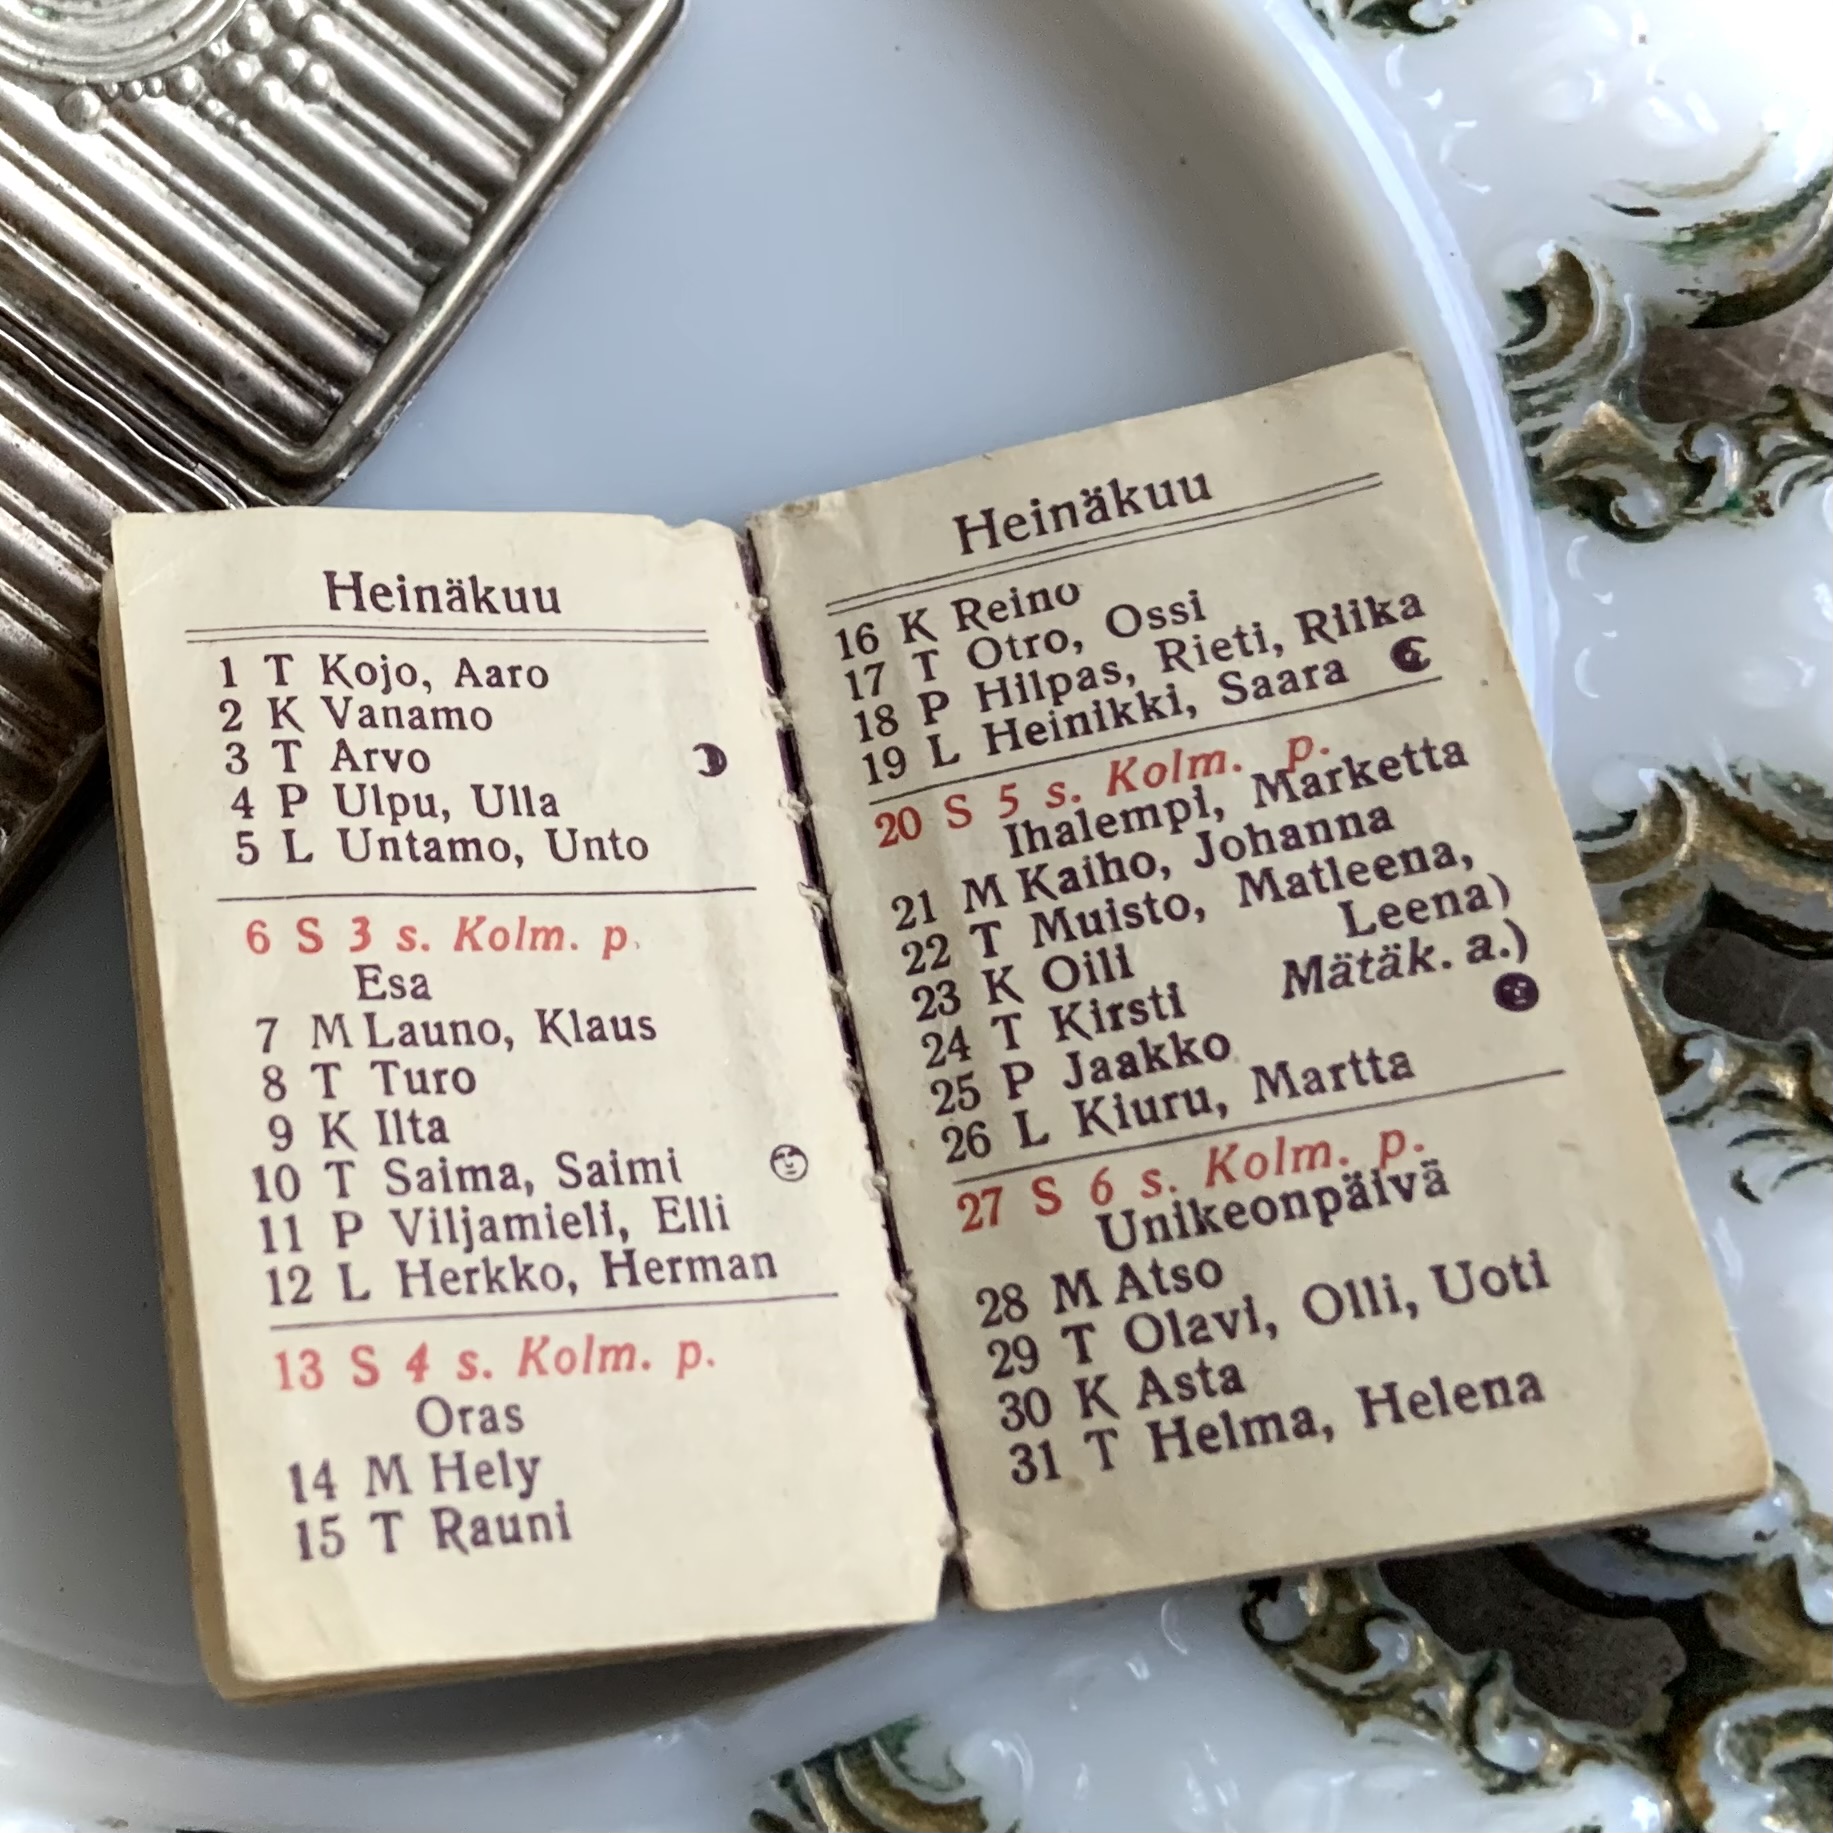 Heinäkuu
1 T Kojo, Aaro
2 K Vanamo
3 T Arvo
4 P Ulpu, Ulla
5 L Untamo, Unto
6 S 3 s. Kolm. p.
Esa
7 M Launo, Klaus
8 T Turo
9 K Ilta
10 T Saima, Saimi
11 P Viljamieli, Elli
12 L Herkko, Herman
13 S 4 s. Kolm. p.
Oras
14 M Hely
15 T Rauni
Heinäkuu
16 K Reino
17 T Otro, Ossi
18 P Hilpas, Rieti, Riika
19 L Heinikki, Saara
20 S 5 s. Kolm. p.
Ihalempi, Marketta
21 M Kaiho, Johanna
22 T Muisto, Matleena,
Leena)
23 K Oili
Mätäk. a.)
24 T Kirsti
25 P Jaakko
26 L Kiuru, Martta
27 S 6 s. Kolm. p.
Unikeonpäivä
28 M Atso
29 T Olavi, Olli, Uoti
30 K Asta
31 T Helma, Helena